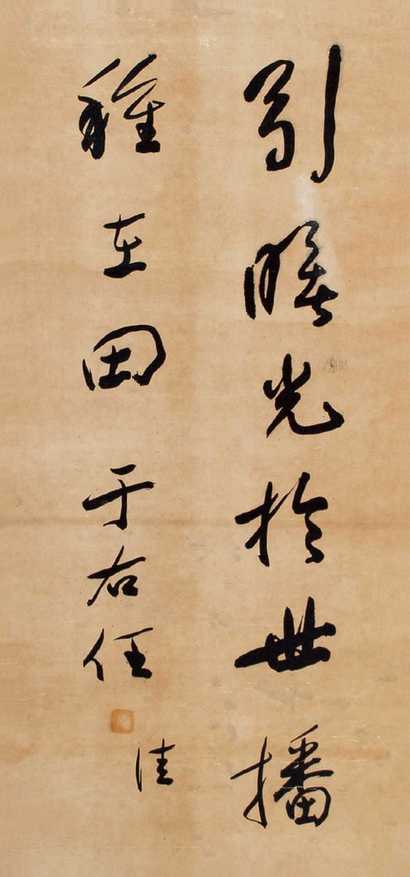 引曙光於世播
種在田于右任
佳